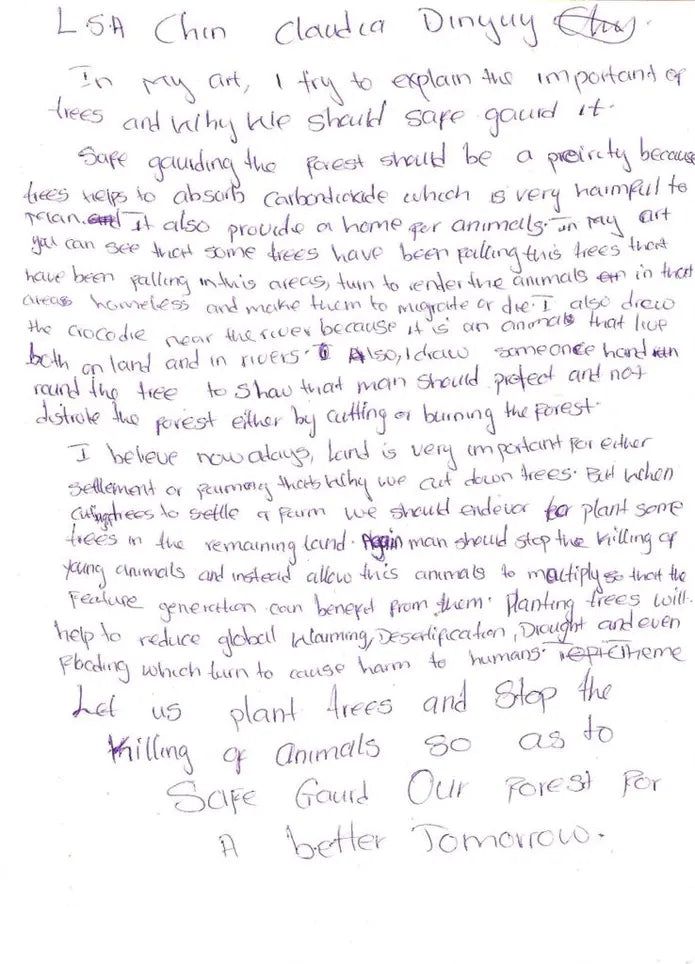 LSA Chin Claudia Dinyuy
In my art, I try to explain the important of
trees and why we should safe gaurd it.
Safe gaurding the forest should be a preircty because
trees helps to absorb carbondioxide which is very harmful to
man. It also provide a home for animals. In my art
you can see that some trees have been falling this trees that
have been falling in this areas, turn to render the animals in that
areas homeless and make them to migrate or die. I also drew
the crocodie near the river because it is an animals that live
both on land and in rivers. Also, I draw someone hand
round the tree to show that man should protect and not
distrote the forest either by cutting or burning the forest.
I believe nowadays, land is very important for either
settlement or farming thats why we cut down trees. But when
cutingtrees to settle or farm we should endevor plant some
trees in the remaining land. Again man should stop the killing of
young animals and instead allow this animals to multiply so that the
feature generation can benefit from them. Planting trees will
help to reduce global warming, Desertification, Drought and even
flooding which turn to cause harm to humans.
Let us plant trees and stop the
killing of animals so as to
Safe Gaurd Our forest for
A better Tomorrow.